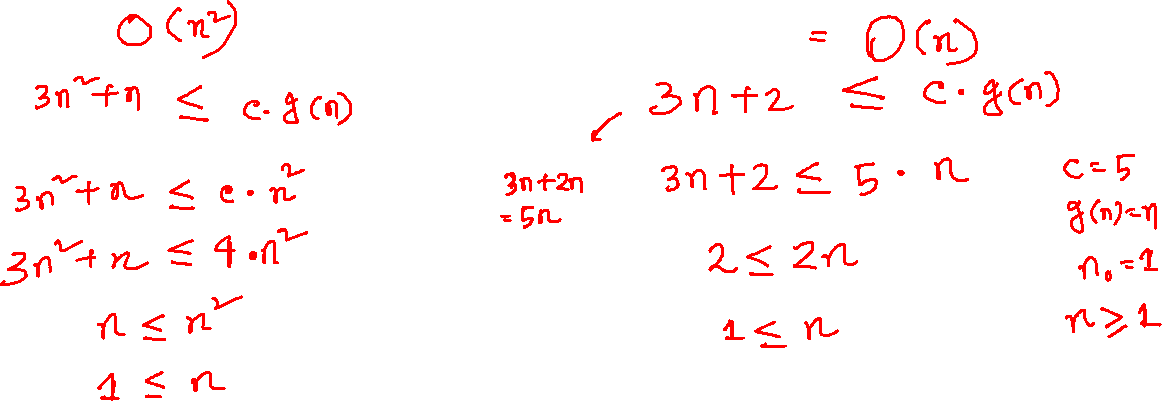 O(n²)
3n²+n ≤ c·g(n)
3n²+n ≤ c·n²
3n²+n ≤ 4·n²
n ≤ n²
1 ≤ n
= O(n)
3n+2 ≤ c·g(n)
3n+2n
= 5n
3n+2 ≤ 5·n
2 ≤ 2n
1 ≤ n
c=5
g(n)=n
n₀=1
n≥1